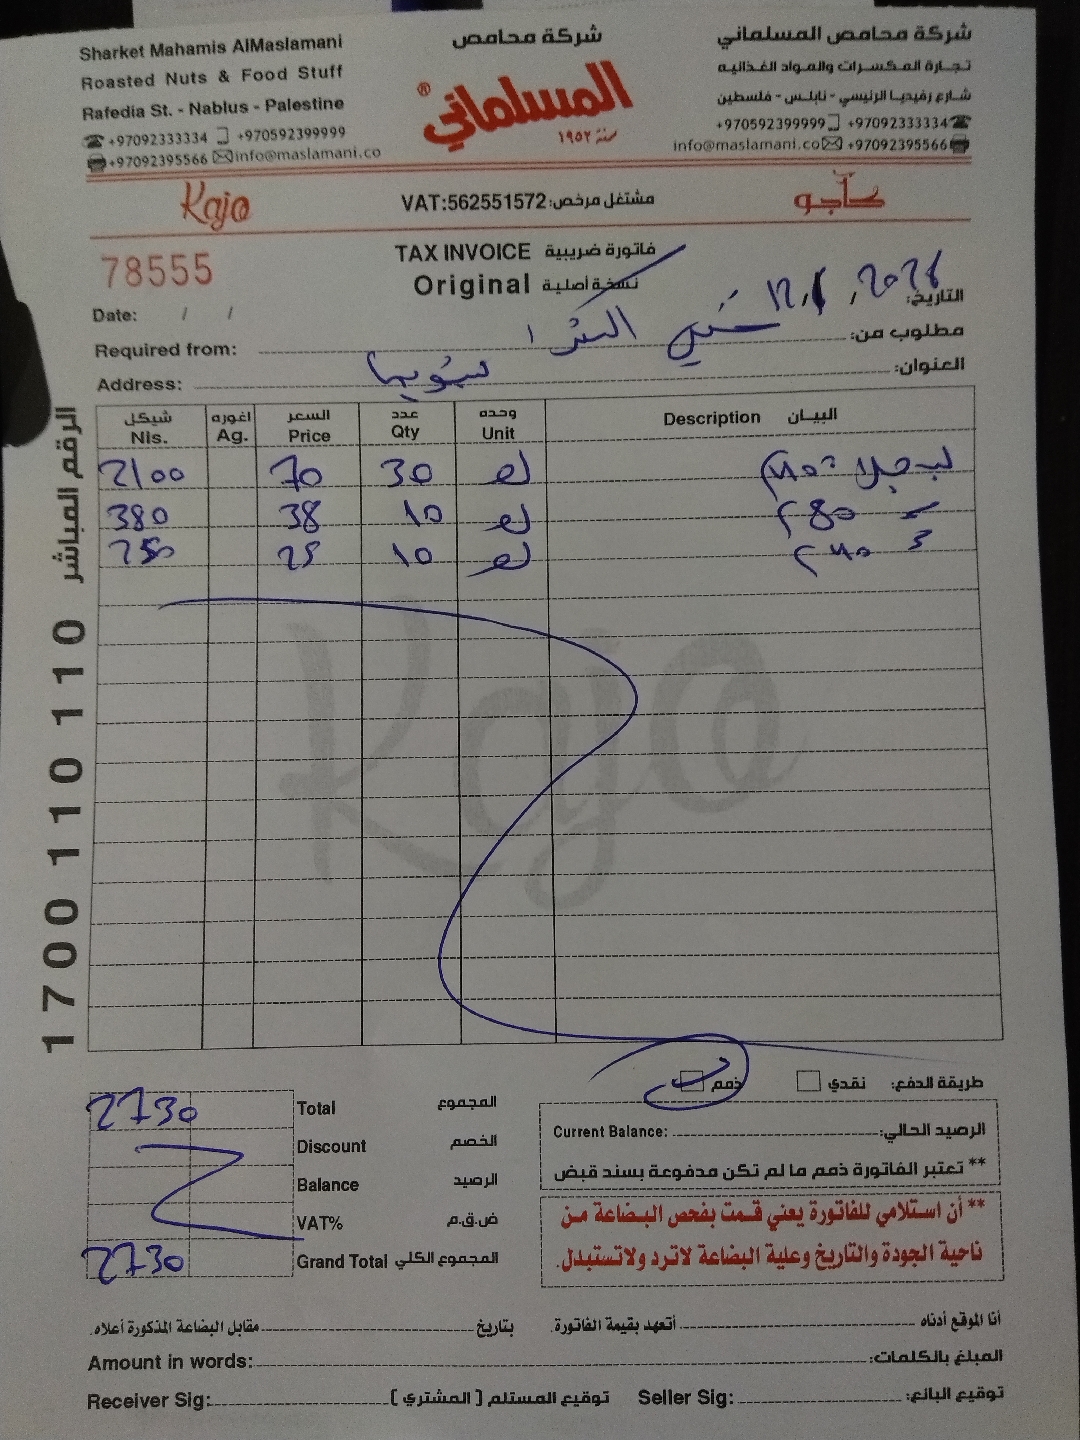 Sharket Mahamis AlMaslamani
Roasted Nuts & Food Stuff
Rafedia St. - Nablus - Palestine
+97092333334 +970592399999
+97092395566 info@maslamani.co
شركة محامص
المسلماني®
سنة ١٩٥٢
شركة محامص المسلماني
تجارة المكسرات والمواد الغذائية
شارع رفيديا الرئيسي - نابلس - فلسطين
+970592399999 +97092333334
info@maslamani.co +97092395566
Kajo
VAT:562551572 مشتغل مرخص:
كاجو
78555
TAX INVOICE فاتورة ضريبية
Original نسخة أصلية
Date: / /
التاريخ:
Required from: مطلوب من:
Address: العنوان:
شيكل اغوره السعر عدد وحده
Nls. Ag. Price Qty Unit Description البيان
2100 70 30
380 38 10 80
250 25 10
Kajo
الرقم المباشر 1700 110 110
طريقة الدفع: نقدي ذمم
2730 Total المجموع
Discount الخصم
Balance الرصيد
VAT% ض.ق.م
2730 Grand Total المجموع الكلي
Current Balance: الرصيد الحالي:
** تعتبر الفاتورة ذمم ما لم تكن مدفوعة بسند قبض
** أن استلامي للفاتورة يعني قمت بفحص البضاعة من
ناحية الجودة والتاريخ وعلية البضاعة لاترد ولاتستبدل.
أنا الموقع أدناه أتعهد بقيمة الفاتورة. بتاريخ مقابل البضاعة المذكورة أعلاه.
Amount in words: المبلغ بالكلمات:
Receiver Sig: توقيع المستلم [المشتري] Seller Sig: توقيع البائع: